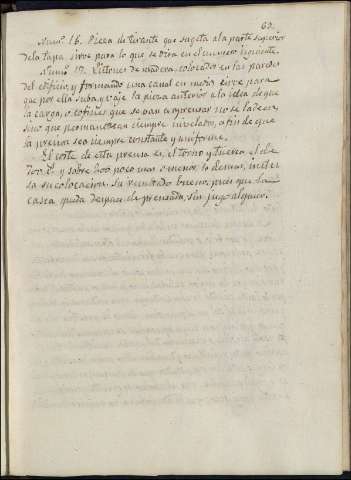 63.
Num.º 16. Pieza de tirante que sugeta ala parte superior
dela tapa, sirve para lo que se dira en el numero siguiente.
Num.º 17. Listones de madera, colocados en las paredes
del edificio, y formando una canal en medio sirve para
que por ella suba, y vaje la pieza anterior a la idea de que
la carga, o cofines que se van a aprensar no se ladeen
sino que permanescan siempre nivelados, a fin de que
la prensa sea siempre constante y uniforme.
El coste de esta prensa es, el torno y tuerca el de
y sobre 200 poco mas o menos, lo demas, inclu
sa su colocacion. Su resultado bueno, pues que la
casca queda despues de prensada, sin jugo alguno.